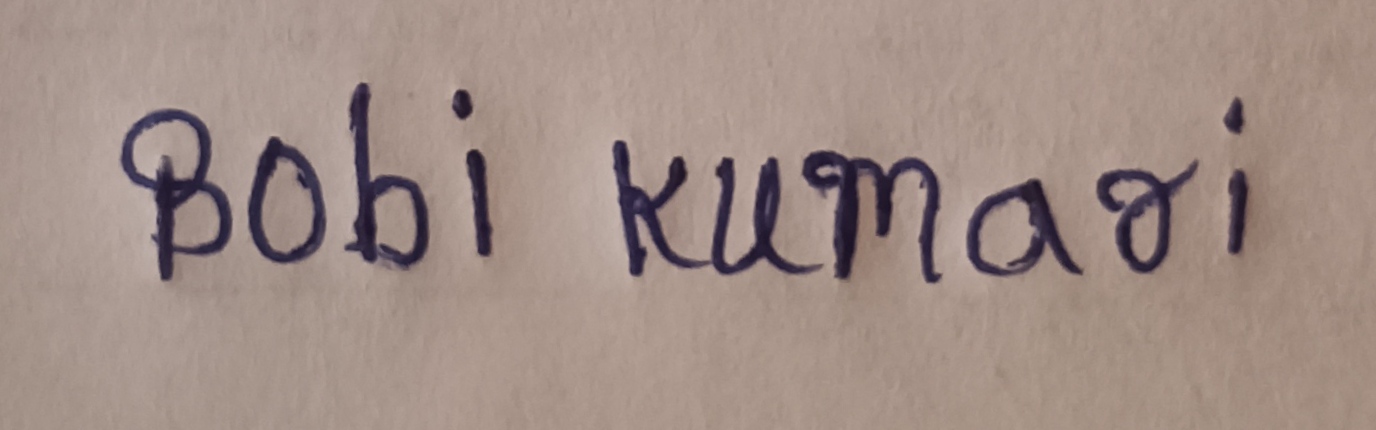 Bobi kumari